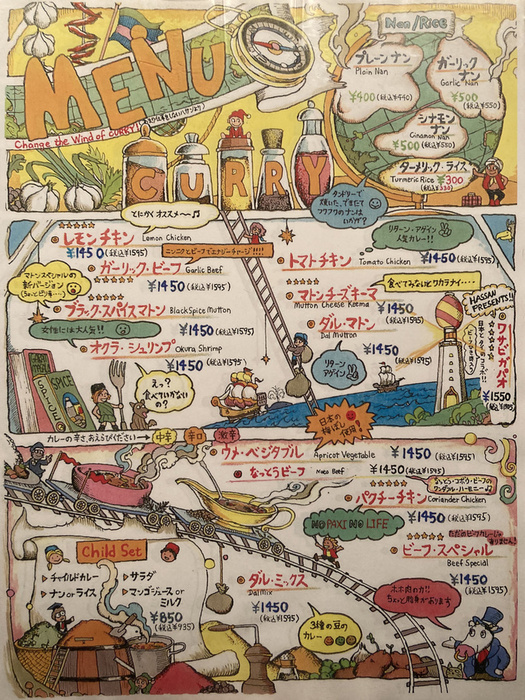 MENU
Change the Wind of CURRY!
CURRY
Nan/Rice
プレーンナン
Plain Nan
¥400(税込¥440)
ガーリック
ナン
Garlic Nan
¥500
(税込¥550)
シナモン
ナン
Cinamon Nan
¥500(税込¥550)
ターメリック・ライス
Turmeric Rice ¥300
(税込¥330)
タンドリーで
焼いた、できたて
フワフワのナンは
いかが?
とにかくオススメ〜♫
レモンチキン Lemon Chicken
¥1450(税込¥1595)
ニンニクとビーフでエナジーチャージ!!!!
ガーリック・ビーフ Garlic Beef
¥1450(税込¥1595)
マトンスペシャルの
新バージョン
ブラック・スパイスマトン BlackSpice Mutton
¥1450(税込¥1595)
女性には大人気!!
オクラ・シュリンプ Okura Shrimp
¥1450(税込¥1595)
リターン・アゲイン
人気カレー!!
トマトチキン Tomato Chicken ¥1450(税込¥1595)
食べてみないとワカラナイ・・・・
マトンチーズキーマ
Mutton Cheese Keema
¥1450(税込¥1595)
ダル・マトン
Dal Mutton
¥1450
(税込¥1595)
リターン
アゲイン
HASSAN
PRESENTS!!
ワサビ・ガパオ
¥1550
SPICE
えっ?
食べていかない
の?
カレーの辛さ、おえらびください→ 中辛 辛口 激辛
日本の
梅ぼし
使用!
ウメ・ベジタブル Apricot Vegetable ¥1450(税込¥1595)
なっとうビーフ Natto Beef ¥1450(税込¥1595)
パクチーチキン Coriander Chicken
¥1450(税込¥1595)
NO PAXI NO LIFE
ただのビーフカレーじゃ
ありません!
ビーフ・スペシャル
Beef Special
¥1450
(税込¥1595)
ダル・ミックス
Dal Mix
¥1450
(税込¥1595)
3種の豆の
カレー
ホホ肉の力!!
Child Set
チャイルドカレー
ナン or ライス
サラダ
マンゴジュース or
ミルク
¥850
(税込¥935)